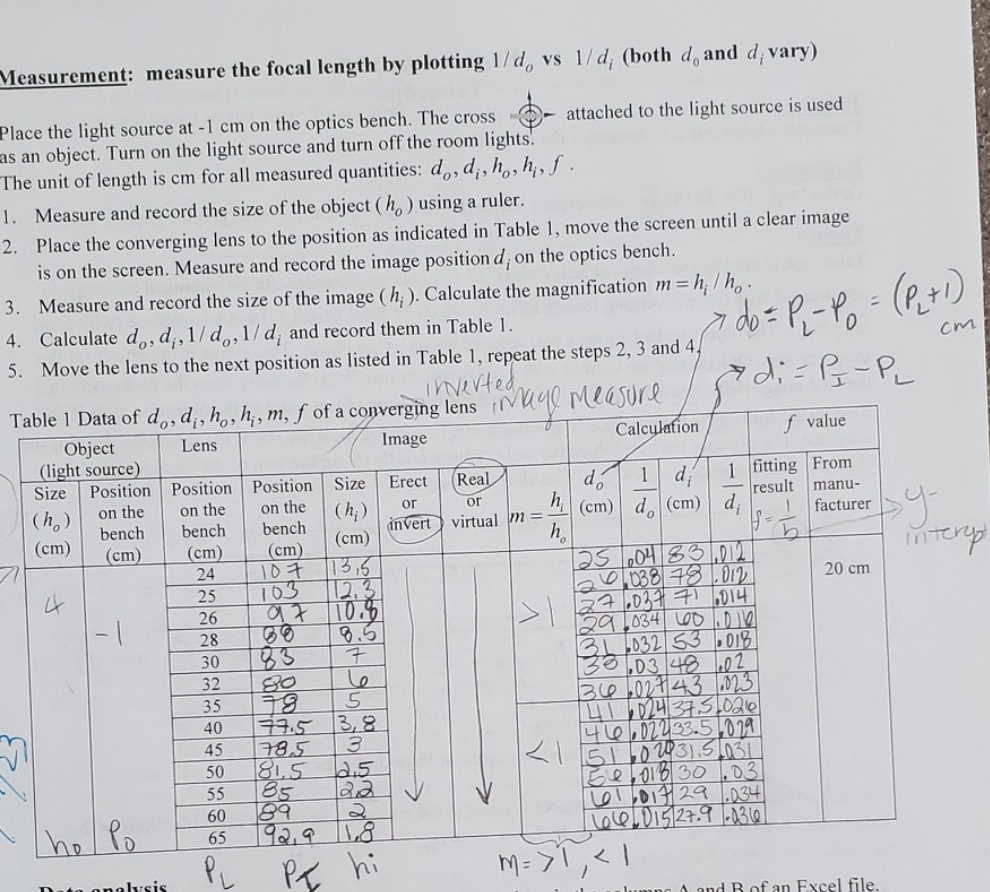 Measurement: measure the focal length by plotting 1/dₒ vs 1/dᵢ (both dₒ and dᵢ vary)
Place the light source at -1 cm on the optics bench. The cross attached to the light source is used
as an object. Turn on the light source and turn off the room lights.
The unit of length is cm for all measured quantities: dₒ, dᵢ, hₒ, hᵢ, f .
1. Measure and record the size of the object (hₒ) using a ruler.
2. Place the converging lens to the position as indicated in Table 1, move the screen until a clear image
is on the screen. Measure and record the image position dᵢ on the optics bench.
3. Measure and record the size of the image (hᵢ). Calculate the magnification m = hᵢ / hₒ .
4. Calculate dₒ, dᵢ, 1/dₒ, 1/dᵢ and record them in Table 1.
do = P_L - P_O = (P_L+1) cm
5. Move the lens to the next position as listed in Table 1, repeat the steps 2, 3 and 4.
di = P_I - P_L
inverted
image measure
Table 1 Data of dₒ, dᵢ, hₒ, hᵢ, m, f of a converging lens
Object (light source) Lens Image Calculation f value
Size (hₒ) (cm) Position on the bench (cm) Position on the bench (cm) Position on the bench (cm) Size (hᵢ) (cm) Erect or invert Real or virtual m = hᵢ/hₒ dₒ (cm) 1/dₒ dᵢ (cm) 1/dᵢ fitting result f = 1/b From manu-facturer
y-intercept
24 107 13,5 25 .04 83 .012 20 cm
4 25 103 12,3 26 .038 78 .012
26 97 10.8 >1 27 .037 71 .014
-1 28 88 8.5 29 .034 60 .016
30 83 7 31 .032 53 .018
32 80 6 33 .03 48 .02
35 78 5 36 .027 43 .023
40 77.5 3,8 41 .024 37.5 .026
45 78.5 3 46 .022 33.5 .029
50 81.5 2.5 <1 51 .020 31.5 .031
55 85 2.2 56 .018 30 .03
60 89 2 61 .017 29 .034
ho Po 65 92,9 1.8 66 .015 27.9 .036
P_L P_I hi m= >1, <1
Data analysis
A and B of an Excel file.